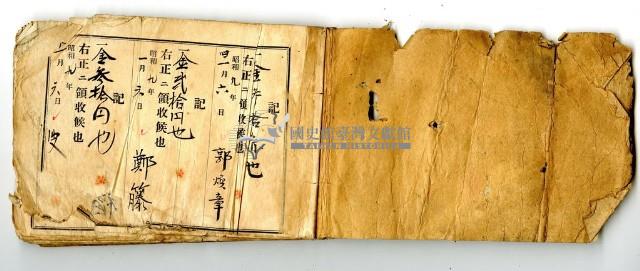 記
一金弐拾円也
右正ニ領收候也
昭和九年
四月六日
郭燧章
記
一金弐拾円也
右正ニ領收候也
昭和九年
一月六日
鄭籐
記
一金參拾円也
右正ニ領收候也
昭和九年
月六日
國史館臺灣文獻館
TAIWAN HISTORICA